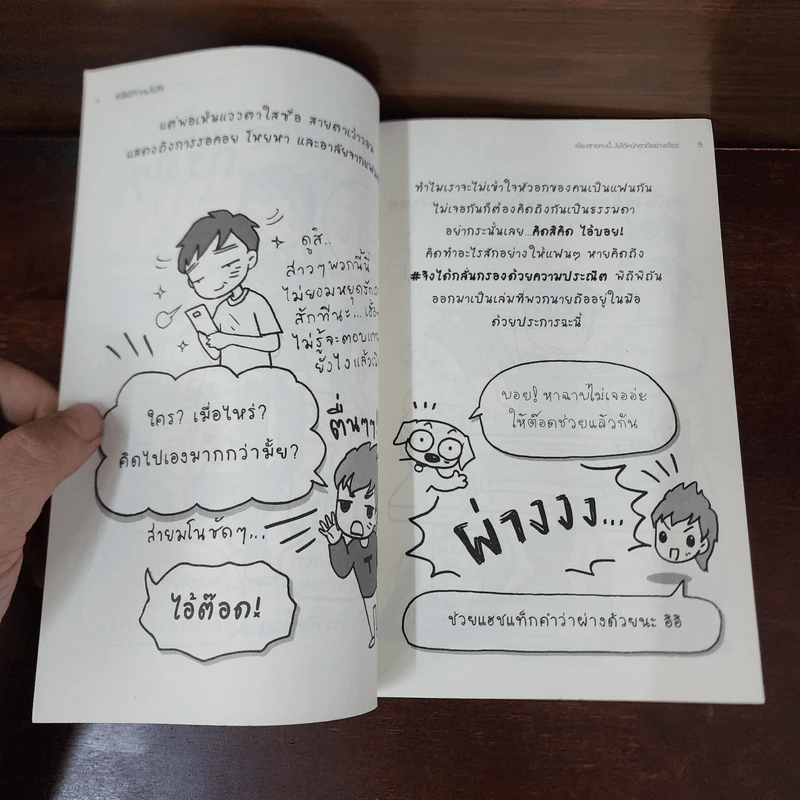 แต่พอเห็นแววตาใสซื่อ สายตาเว้าวอน
แสดงถึงการรอคอย โหยหา และอาลัยจาก
ดูสิ..
สาวๆพวกนี้นี่
ไม่ยอมหยุดรัก
สักทีนะ...
ไม่รู้จะตอบแทน
ยังไงแล้ว
ใคร? เมื่อไหร่?
คิดไปเองมากกว่ามั้ย?
ตื่นๆๆ!
สายมโนชัดๆ...
ไอ้ต๊อด!
5
ทำไมเราจะไม่เข้าใจหัวอกของคนเป็นแฟนกัน
ไม่เจอกันก็ต้องคิดถึงกันเป็นธรรมดา
อย่ากระนั้นเลย...คิดสิคิด ไอ้บอย!
คิดทำอะไรสักอย่างให้แฟนๆ หายคิดถึง
#จึงได้กลั่นกรองด้วยความประณีต พิถีพิถัน
ออกมาเป็นเล่มที่พวกนายถืออยู่ในมือ
ด้วยประการฉะนี้
บอย! หาฉาบไม่เจออ่ะ
ให้ต๊อดช่วยแล้วกัน
ผ่างงง...
T
ช่วยแฮชแท็กคำว่าผ่างด้วยนะ อิอิ